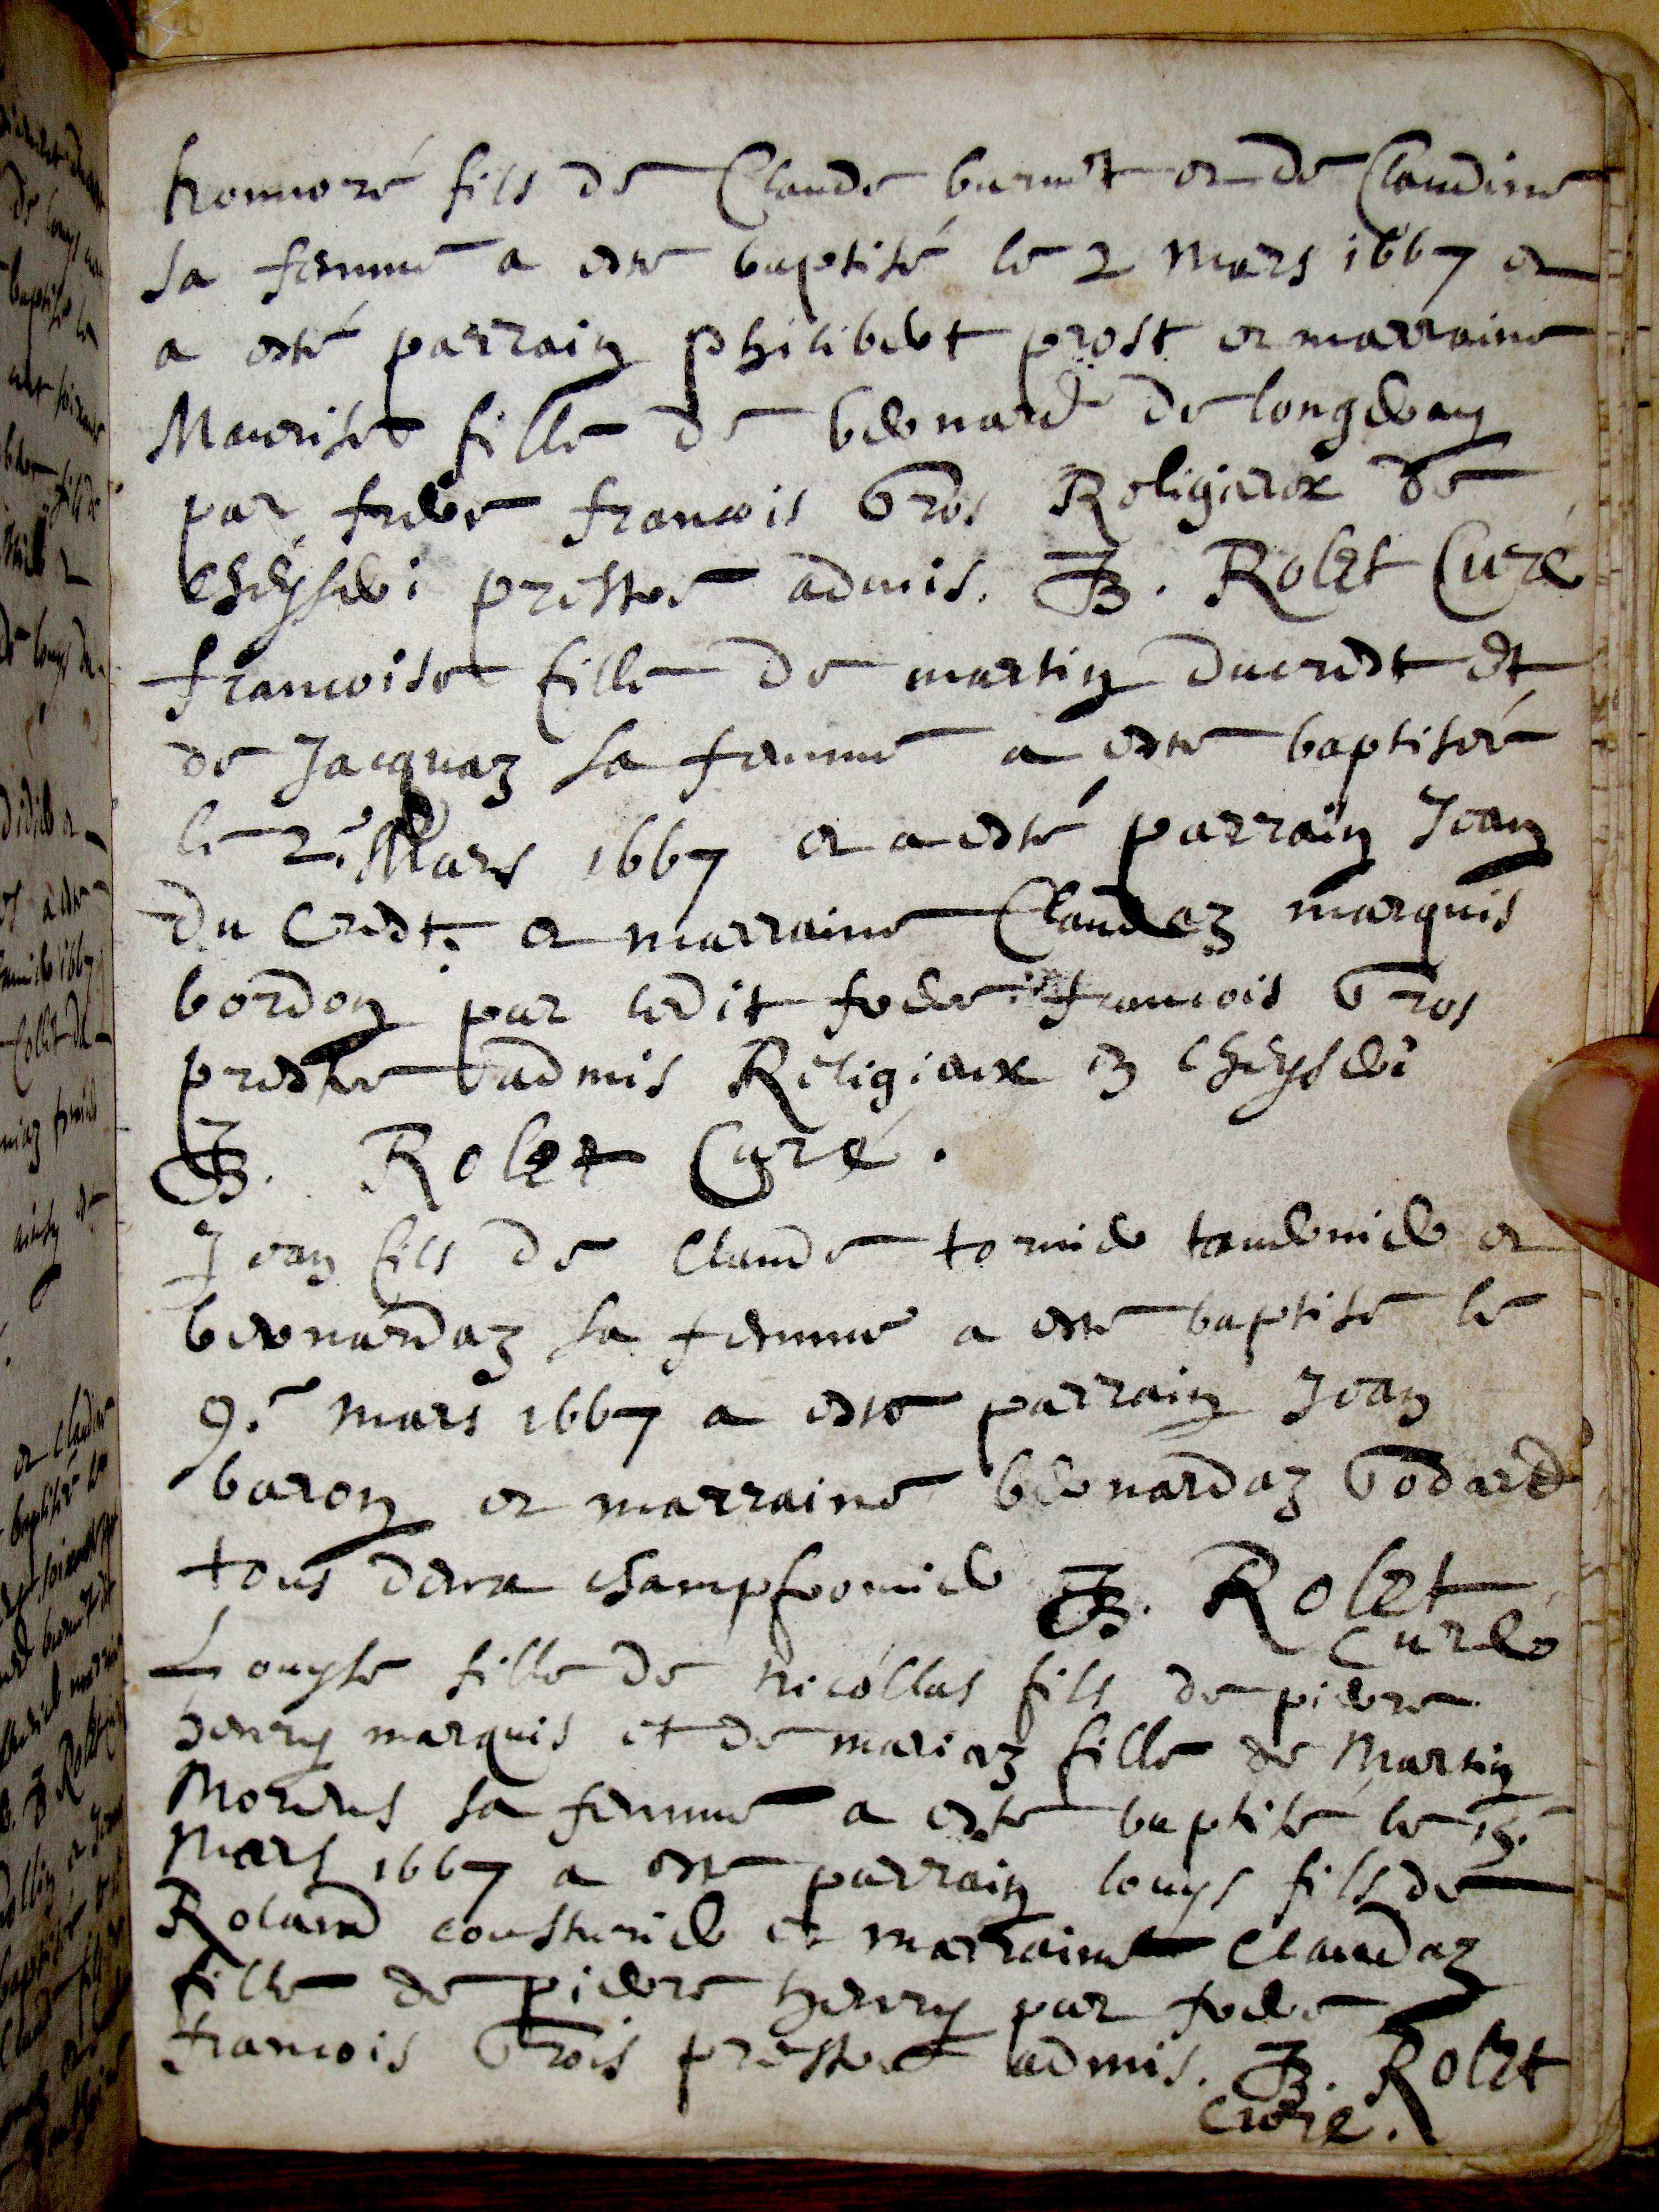 honnoré fils de Claude burnet et de Claudine
sa femme a esté baptisé le 2 mars 1667 et
a esté parrain philibert prost et marraine
Maurise fille de bernard de longeray
par frere francois Gros Religieux de
Cheyseri prestre admis. JB. Rolet Curé
francoise fille de martin ducrest et
de Jacquaz sa femme a esté baptisée
le 2.e Mars 1667 et a esté parrain Jean
du Crest. et marraine Claudaz marquis
bordon par ledit frere francois Gros
prestre admis Religieux en Cheyseri
JB. Rolet Curé.
Jean fils de Claude tornier et
bernardaz sa femme a esté baptisé le
9.e mars 1667 a esté parrain Jean
baron et marraine bernardaz Godard
tous deux champfromier JB. Rolet
Curé
Louyse fille de nicollas fils de pierre
henry marquis et de mariaz fille de Martin
sa femme a esté baptisé le
Mars 1667 a esté parrain louys fils de
Roland cousturier et marraine Claudaz
fille de pierre henry par frere
francois Grois prestre admis. JB. Rolet
Curé.